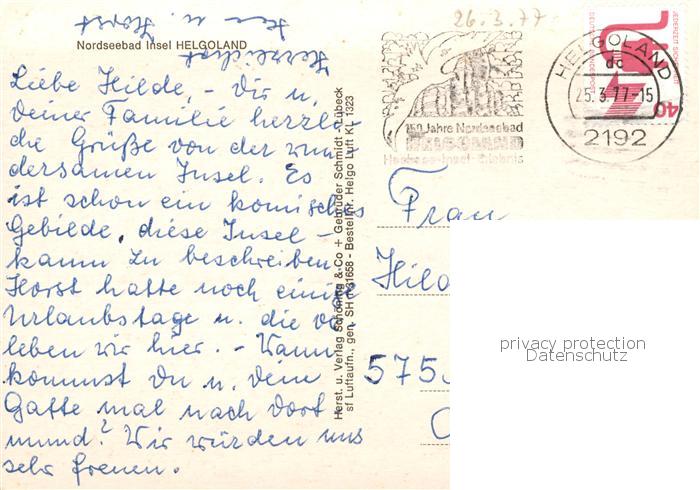 Nordseebad Insel HELGOLAND
Liebe Hilde, - Dir u.
deiner Familie herzli
che Grüße von der wun
dersamen Insel. Es
ist schon ein komisches
Gebilde, diese Insel -
kaum zu beschreiben.
Horst hatte noch einige
Urlaubstage u. die ver
leben wir hier. - Wann
kommst Du u. Dein
Gatte mal nach Dort
mund? Wir würden uns
sehr freuen.
Herzlichst
u. Horst
Herst. u. Verlag Schöning & Co + Gebrüder Schmidt - Lübeck
sf Luftaufn., gen. SH
Bestell-Nr. Helgo Luft KL 1323
26.3.77
150 Jahre Nordseebad
HELGOLAND
Hochsee-Insel-Erlebnis
HELGOLAND
dc
25.3.77-15
2192
JEDERZEIT SICHERHEIT
DEUTSCHE BUNDESPOST
40
Frau
Hild
575
privacy protection
Datenschutz